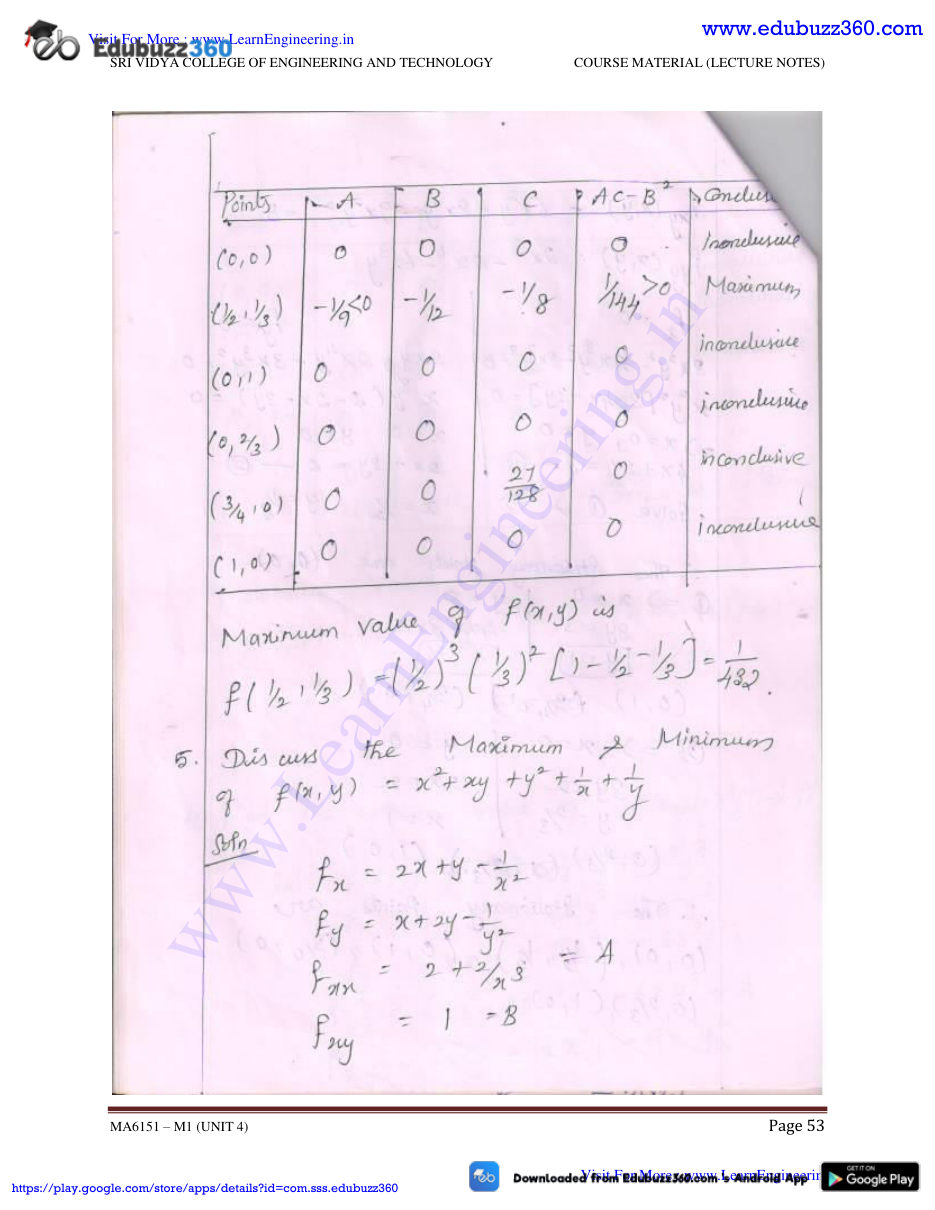 Visit For More : www.LearnEngineering.in
www.edubuzz360.com
Edubuzz360
SRI VIDYA COLLEGE OF ENGINEERING AND TECHNOLOGY COURSE MATERIAL (LECTURE NOTES)
Points A B C AC-B²
(0,0) 0 0 0 0 Inconclusive
(1/2, 1/3) -1/9<0 -1/12 -1/8 1/144>0 Maximum
(0,1) 0 0 0 0 inconclusive
(0, 2/3) 0 0 0 0 inconclusive
(3/4, 0) 0 0 27/128 0 inconclusive
(1,0) 0 0 0 0 inconclusive
Maximum value of f(x,y) is
f(1/2, 1/3) = (1/2)³ (1/3)² [1 - 1/2 - 1/3] = 1/432.
5. Discuss the Maximum & Minimum
of f(x,y) = x²+xy+y²+1/x+1/y
Soln
fx = 2x+y-1/x²
fy = x+2y-1/y²
fxx = 2+2/x³ = A
fxy = 1 = B
www.LearnEngineering.in
MA6151 – M1 (UNIT 4) Page 53
https://play.google.com/store/apps/details?id=com.sss.edubuzz360
Downloaded from EduBuzz360.com 's Android App
Visit For More : www.LearnEngineerin
GET IT ON
Google Play